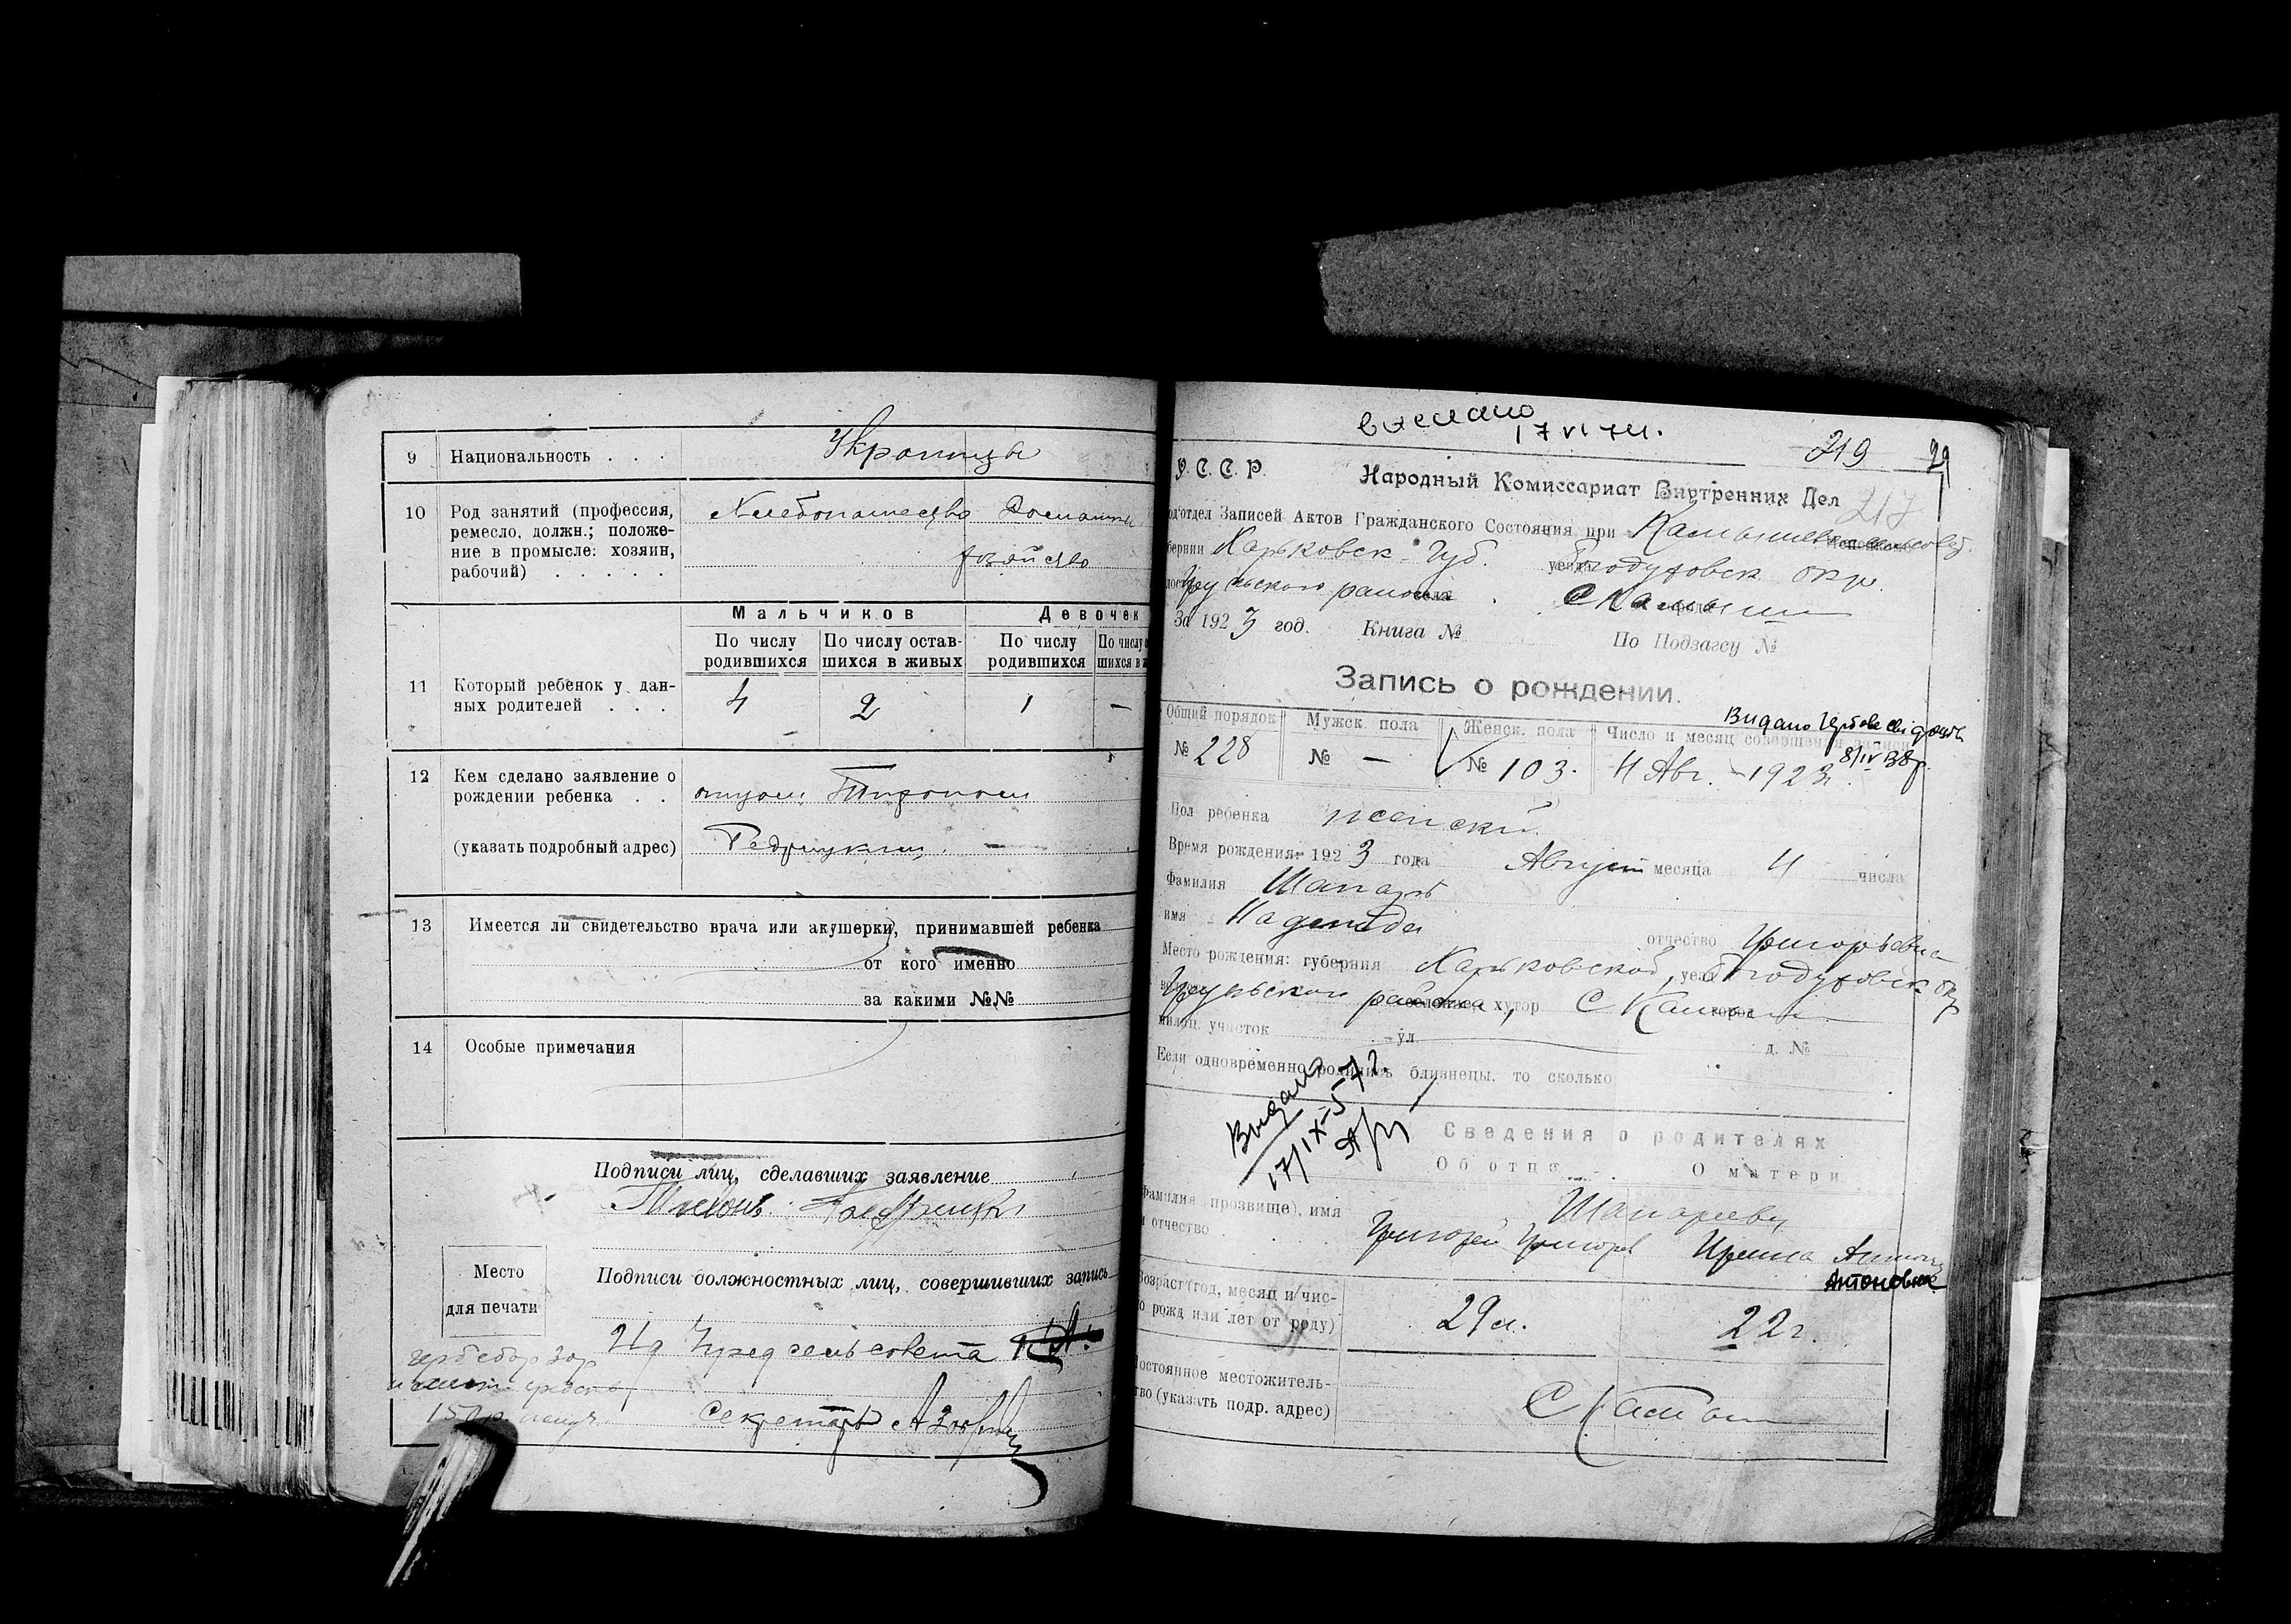 9 Национальность . . . Украинцы
10 Род занятий (профессия, Хлебопашество Домашн
ремесло, должн.; положе-
ние в промысле: хозяин, хозяйство
рабочий) . . . . .
Мальчиков Девочек
По числу родившихся По числу оставшихся в живых По числу родившихся По числу
11 Который ребенок у дан- 4 2 1 —
ных родителей . . .
12 Кем сделано заявление о
рождении ребенка . . отцом Тихоном
(указать подробный адрес)
13 Имеется ли свидетельство врача или акушерки, принимавшей ребенка
от кого именно
за какими №№
14 Особые примечания
Подписи лиц, сделавших заявление
Место
для печати
Подписи должностных лиц, совершивших запись
Предсельсовета
секретарь
17 VI 74г.
219
217
У. С. С. Р. Народный Комиссариат Внутренних Дел
одотдел Записей Актов Гражданского Состояния при
бернии Харьковск Губ. уезда Богодуховск окр.
района С Камыши
За 1923 год. Книга № По Подзагсу №
Запись о рождении.
Видано Гербове свідоцтв
8/IV 38р.
Общий порядок Мужск. пола Женск. пола Число и месяц совершения записи
№ 228 № — № 103. 4 Авг. – 1923г.
Пол ребенка женский
Время рождения: 1923 года Август месяца 4 числа
Фамилия Шапарь
имя Надежда отчество Григорьевна
Место рождения: губерния Харьковской, уезд Богодуховск окр
района, хутор С Камыши
милиц. участок ул. д. №
Если одновременно родились близнецы, то сколько
Выдано
17/IX-57г.
Сведения о родителях
Об отце О матери
Фамилия (прозвище), имя Шапареви
и отчество . Григорий Григорьев Ирина
Антоновна
Возраст (год, месяц и чис-
о рожд или лет от роду) 29 л. 22 г.
Постоянное местожитель-
тво (указать подр. адрес) С Камыши